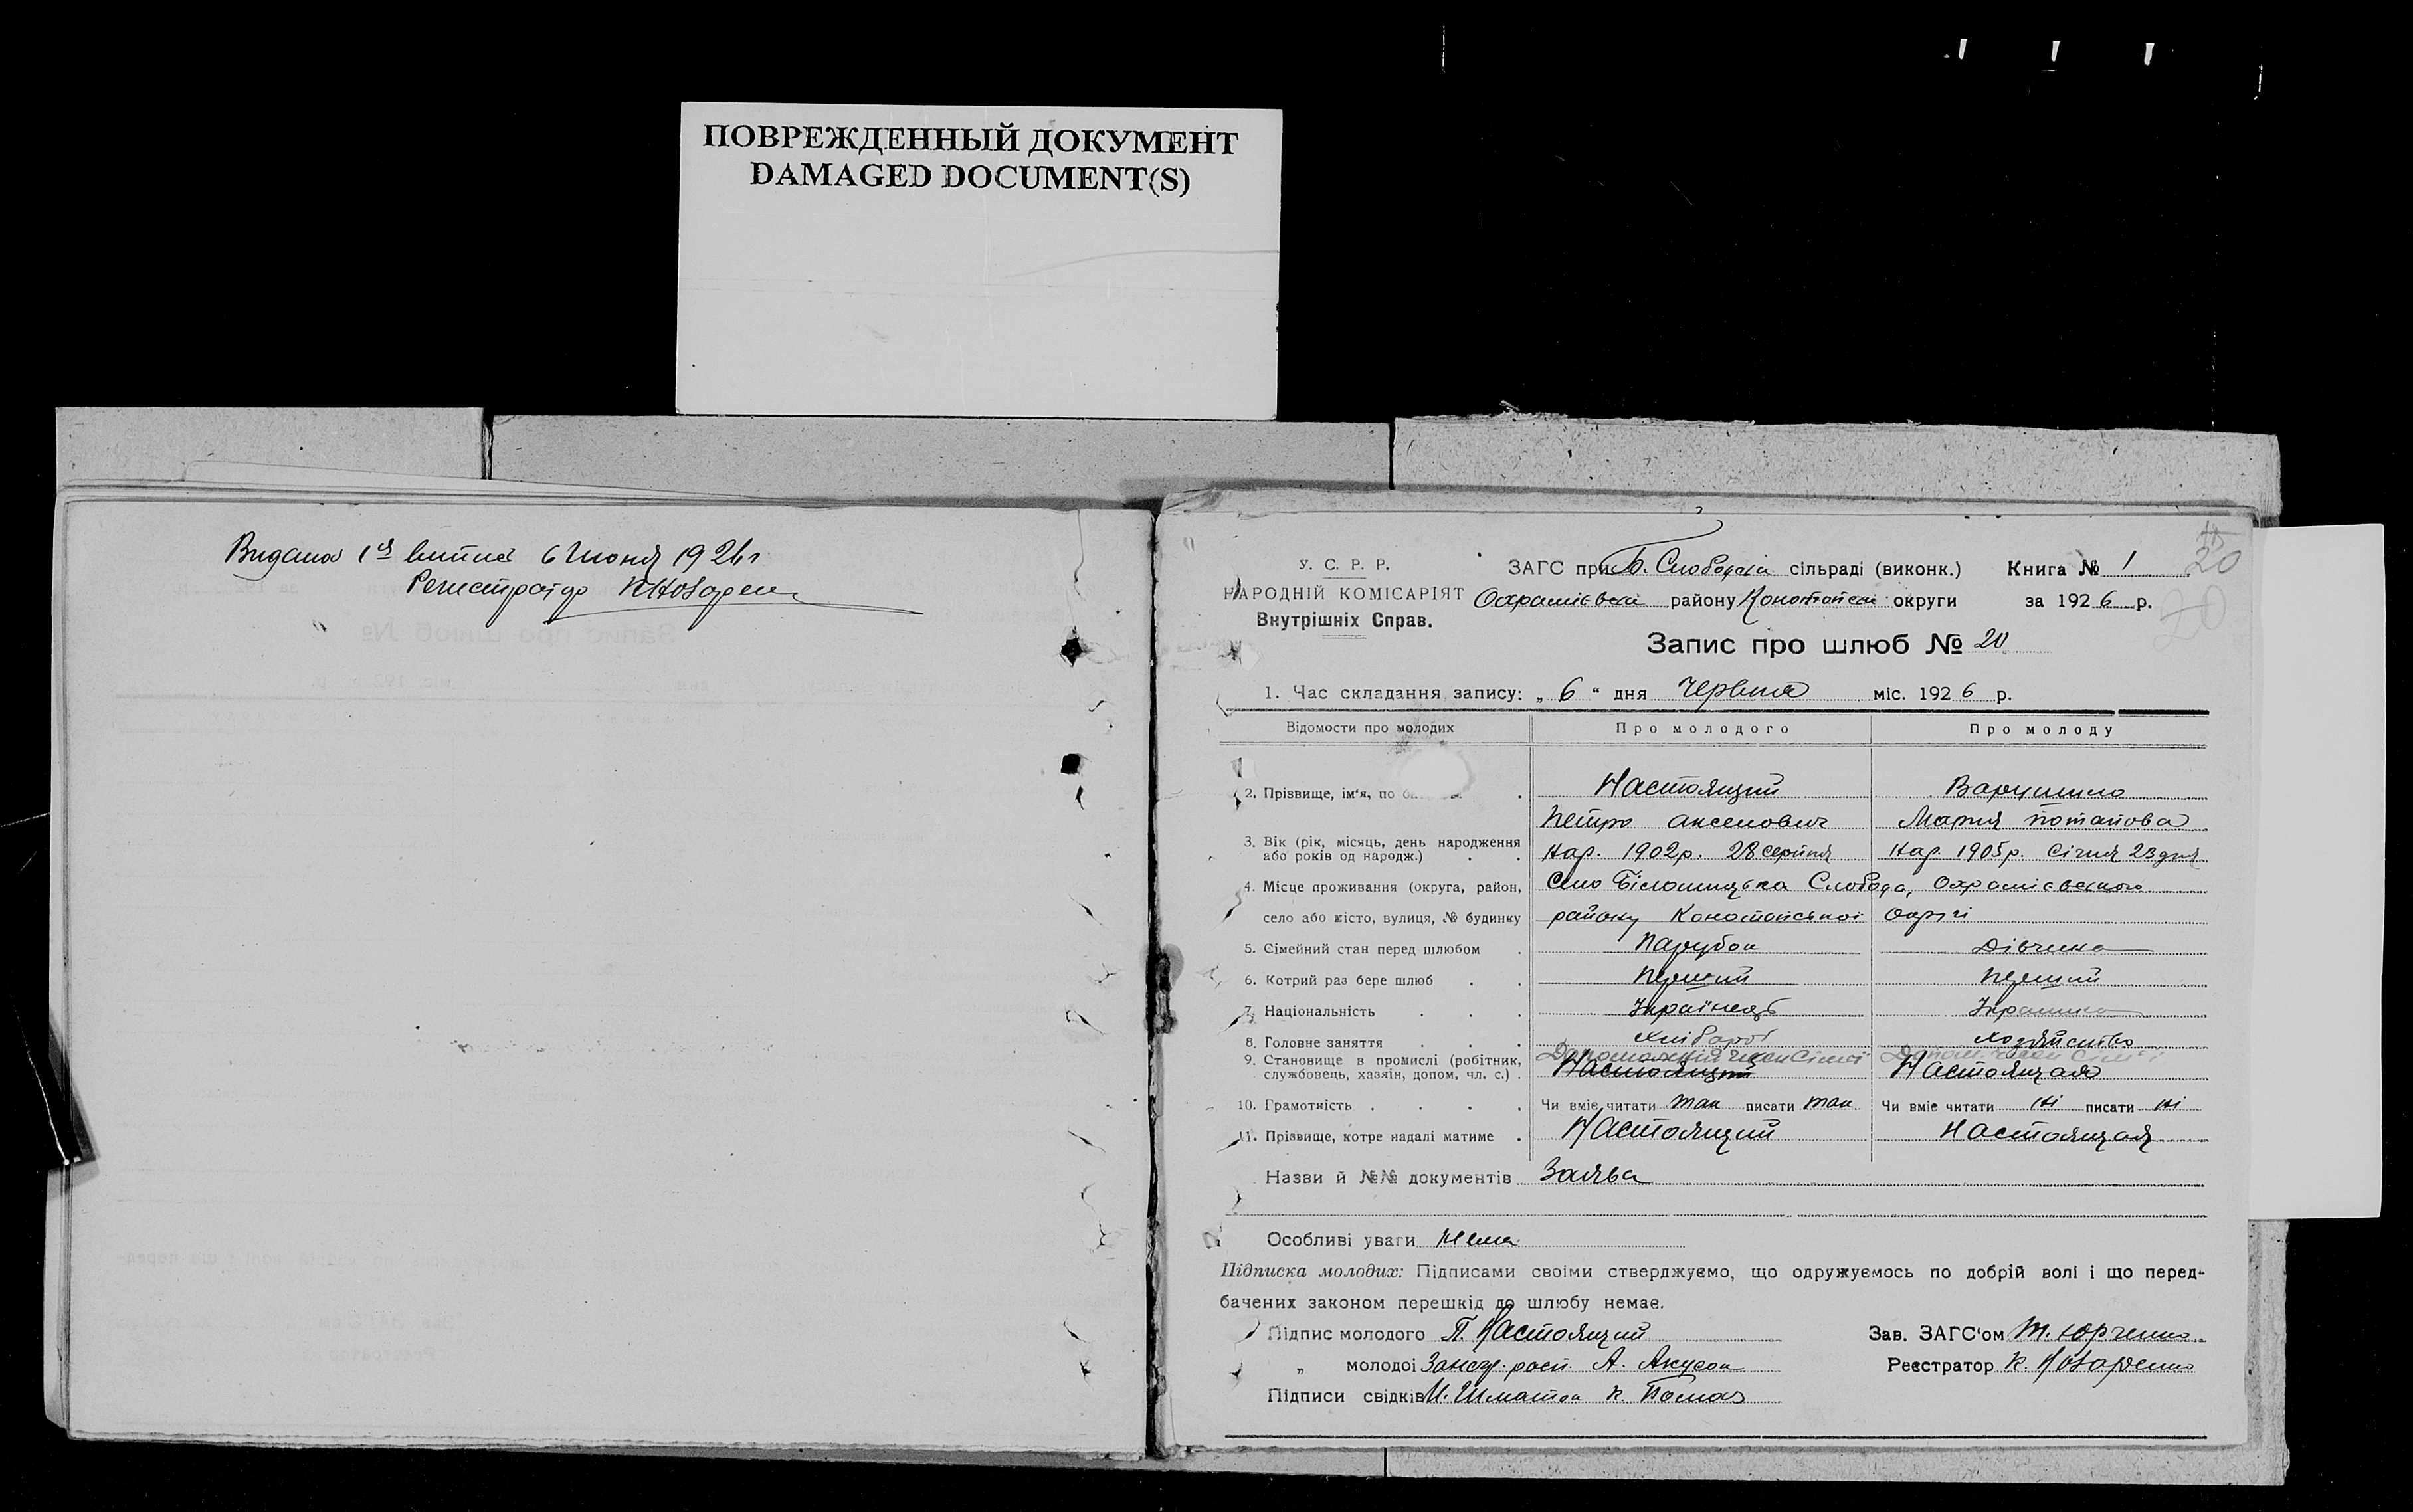 ПОВРЕЖДЕННЫЙ ДОКУМЕНТ
DAMAGED DOCUMENT(S)
Видана 1й витяг 6 Июня 1926 г
Регистратор
У. С. Р. Р.
НАРОДНІЙ КОМІСАРІЯТ
Внутрішніх Справ.
20
ЗАГС при Б. Слободскій сільраді (виконк.) Книга № 1
Охрамієвськ району Конотопськ округи за 1926 р.
Запис про шлюб № 20
1. Час складання запису: „ 6 “ дня Червня міс. 1926 р.
Відомости про молодих Про молодого Про молоду
2. Прізвище, ім'я, по Настоящий
Петро Аксенович Мария Потапова
3. Вік (рік, місяць, день народження або років од народж.) Нар. 1902 р. 28 серпня Нар. 1905 р. Січня 23 дня
4. Місце проживання (округа, район, Село Білошицька Слобода, Охрамієвського
село або місто, вулиця, № будинку район Конотопської Округі
5. Сімейний стан перед шлюбом Парубок Дівчина
6. Котрий раз бере шлюб Перший Перший
7. Національність Українець Українка
8. Головне заняття Хлібороб Хозяйство
9. Становище в промислі (робітник, службовець, хазяін, допом, чл. с.) Допоможній член сімї Допом. член сім'ї
Настоящий Настоящая
10. Грамотність Чи вміє читати так писати так Чи вміє читати ні писати ні
11. Прізвище, котре надалі матиме Настоящий Настоящая
Назви й №№ документів Заява
Особливі уваги Нема
Підписка молодих: Підписами своїми стверджуємо, що одружуємось по добрій волі і що перед-
бачених законом перешкід до шлюбу немає.
Підпис молодого П. Настоящий Зав. ЗАГС'ом Т. Юрченко
„ молодоі А. Реєстратор К.
Підписи свідків И. Шматок К.